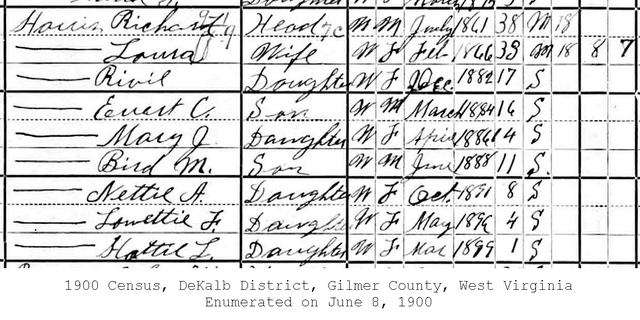 Harris Richard Head W M July 1861 38 M 18
Laura Wife W F Feb 1866 33 M 18 8 7
Rivil Daughter W F Dec 1882 17 S
Evert C. Son W M March 1884 16 S
Mary J Daughter W F April 1886 14 S
Bird M. Son W M June 1888 11 S.
Nettie A. Daughter W F Oct. 1891 8 S
Lowettie F. Daughter W F May 1896 4 S
Hattie L. Daughter W F Mar 1899 1 S
1900 Census, DeKalb District, Gilmer County, West Virginia
Enumerated on June 8, 1900